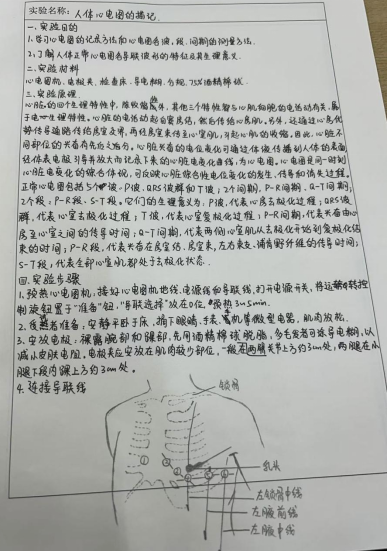 实验名称：人体心电图的描记.
一.实验目的
1.学习心电图的记录方法和心电图各波、段、间期的测量方法.
2.了解人体正常心电图各导联波形的特征及其生理意义.
二.实验材料
心电图机、电极夹、检查床、导电糊、分规、75%酒精棉球.
三.实验原理
心脏的四个生理特性中，除收缩性外，其他三个特性皆与心肌细胞的电活动有关，属
于电生理特性。心脏的电活动起自窦房结，然后传给心房肌，另外，还通过心房优
势传导通路传给房室交界，再经房室束传至心室肌，引起心肌的收缩。因此，心脏不
同部位的兴奋有先后之时分。心脏兴奋的电位变化可通过体液传播到人体的表面
经体表电极引导并放大而记录下来的心脏电变化曲线，为心电图。心电图是同一时刻
心脏电变化的综合体现，可反映心脏综合性电位变化的发生、传导和消失过程。
正常心电图包括5个波：P波、QRS波群和T波；2个间期，P-R间期、Q-T间期；
2个段：P-R段、S-T段。它们的生理意义为：P波，代表心房去极化过程；QRS波
群，代表心室去极化过程；T波，代表心室复极化过程；P-R间期，代表兴奋由心
房至心室之间的传导时间；Q-T间期，代表两侧心室肌从去极化开始到复极化结
束的时间；P-R段，代表兴奋在房室结、房室束、左右束支、浦肯野纤维的传导时间；
S-T段，代表全部心室肌都处于去极化状态.
四.实验步骤
1.预热心电图机：接好心电图机地线、电源线和导联线，打开电源开关，将运转中转控
制旋钮置于"准备"钮，"导联选择"放在0位，预热3~5min.
2.受试者准备，安静平卧于床，摘下眼睛、手表、手机等微型电器，肌肉放松.
3.安放电极：裸露腕部和踝部，先用酒精棉球脱脂，多毛发者可涂导电糊，以
减小皮肤电阻，电极夹应安放在肌肉较少部位，一般在两臂关节上方约3cm处，两腿在小
腿下段内踝上方约3cm处.
4.连接导联线
锁骨
乳头
左锁骨中线
左腋前线
左腋中线